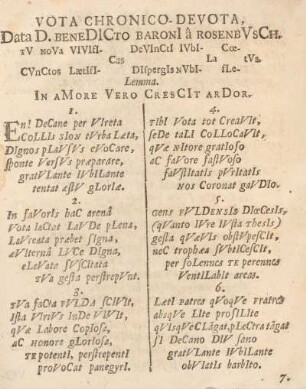 VOTA CHRONICO-DEVOTA,
Data D. BENEDICTO BARONI â ROSENBVSCH.
TV NOVA VIVIsI- DeVInCtI IVbI- Cœ-
Cas La tVa.
CVnCtos LætIsI- DIspergIs NVbI- sLe-
Lemma.
IN AMORE VERO CRESCIT ARDOR.
1.
En! DeCane per VIreta
CoLLIs sIon tVrba Læta,
DIgnos pLaVsVs eVoCare,
sponte VersVs præparare,
gratVLante IVbILante
tentat æstV gLorIæ.
2.
In faVorIs haC arenâ
Vota Iactat LaVDe pLena,
LaVreata præbet sIgna,
æVIternâ LVCe DIgna,
eLeVata sVsCItata
TVa gesta perstrepVnt.
3.
TVa faCta FVLDA sCIVIt,
Ista VIrtVs InDe VIVIt,
qVæ Labore CopIoso,
AC honore gLorIoso,
TE potentI, perstrepentI
proVoCat panegyrI.
4.
TIbI Vota tot CreaVIt,
seDe taLI CoLLoCaVIt,
qVæ nItore gratIoso
AC faVore fastVoso
faVstItatIs pVrItatIs
Nos Coronat gaVDIo.
5.
Gens FVLDENsIs DIœCesIs,
(qVanto IVre IVsta ThesIs)
gesta qVæVIs obstVpesCIt,
neC trophæa sVbtICesCIt,
per soLennes TE perennes
VentILabIt areas.
6.
LætI patres qVoqVe Fratres
absqVe LIte prosILIte
qVIsqVe CLāgat, pLeCtra tāgat
sI DeCano DIV sano
gratVLante IVbILante
obLatIs barbIto.
7.